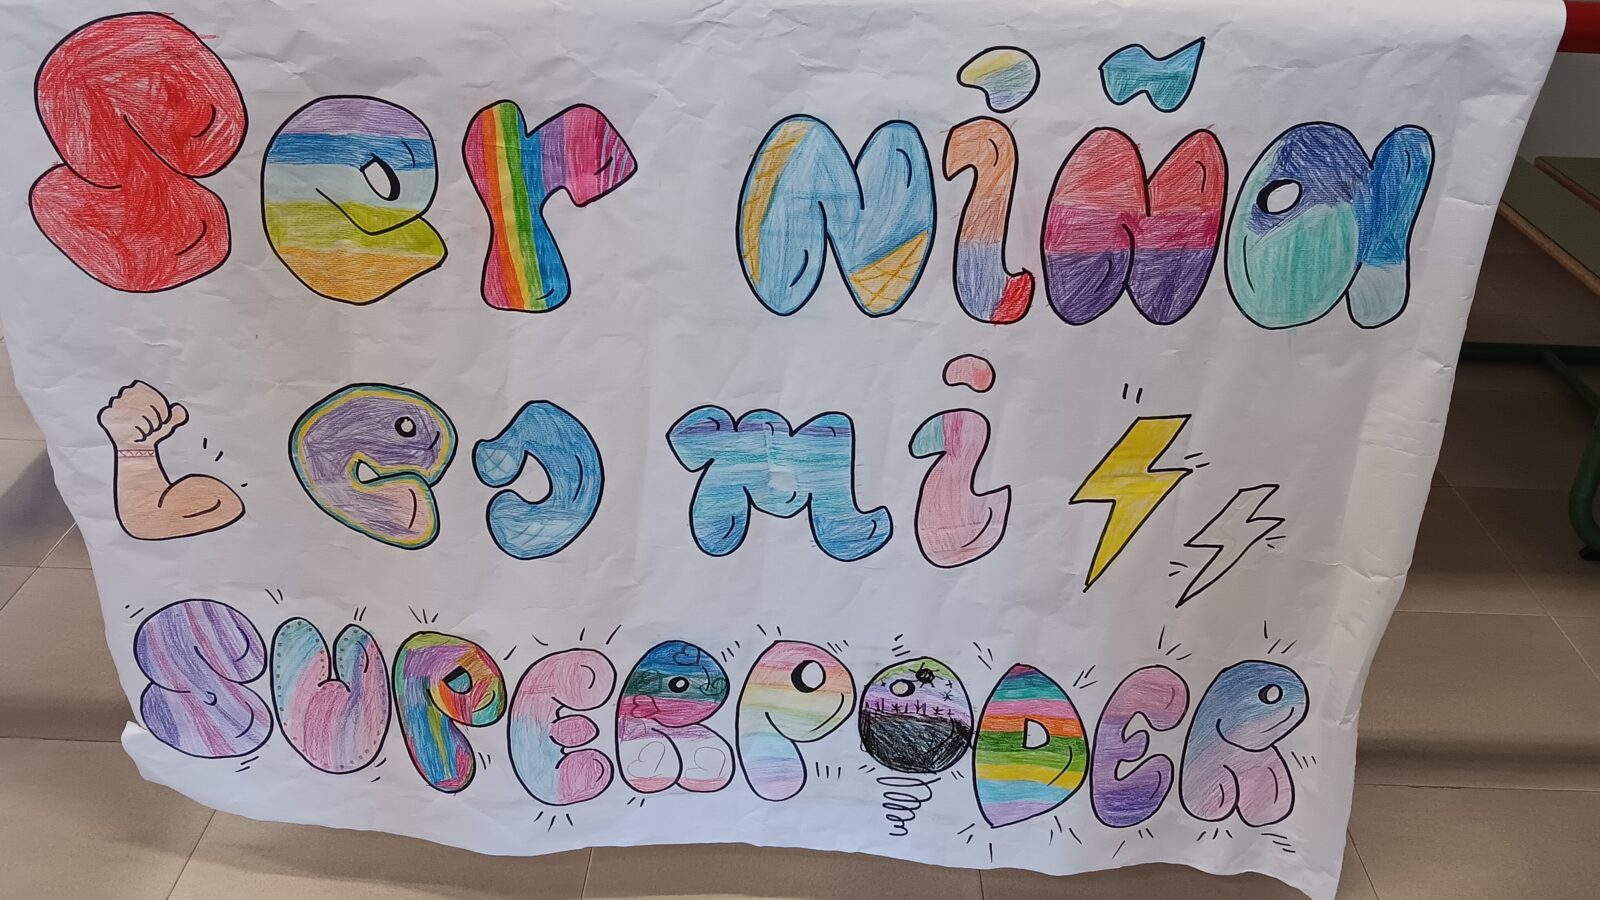 Ser niña
es mi
SUPERPODER